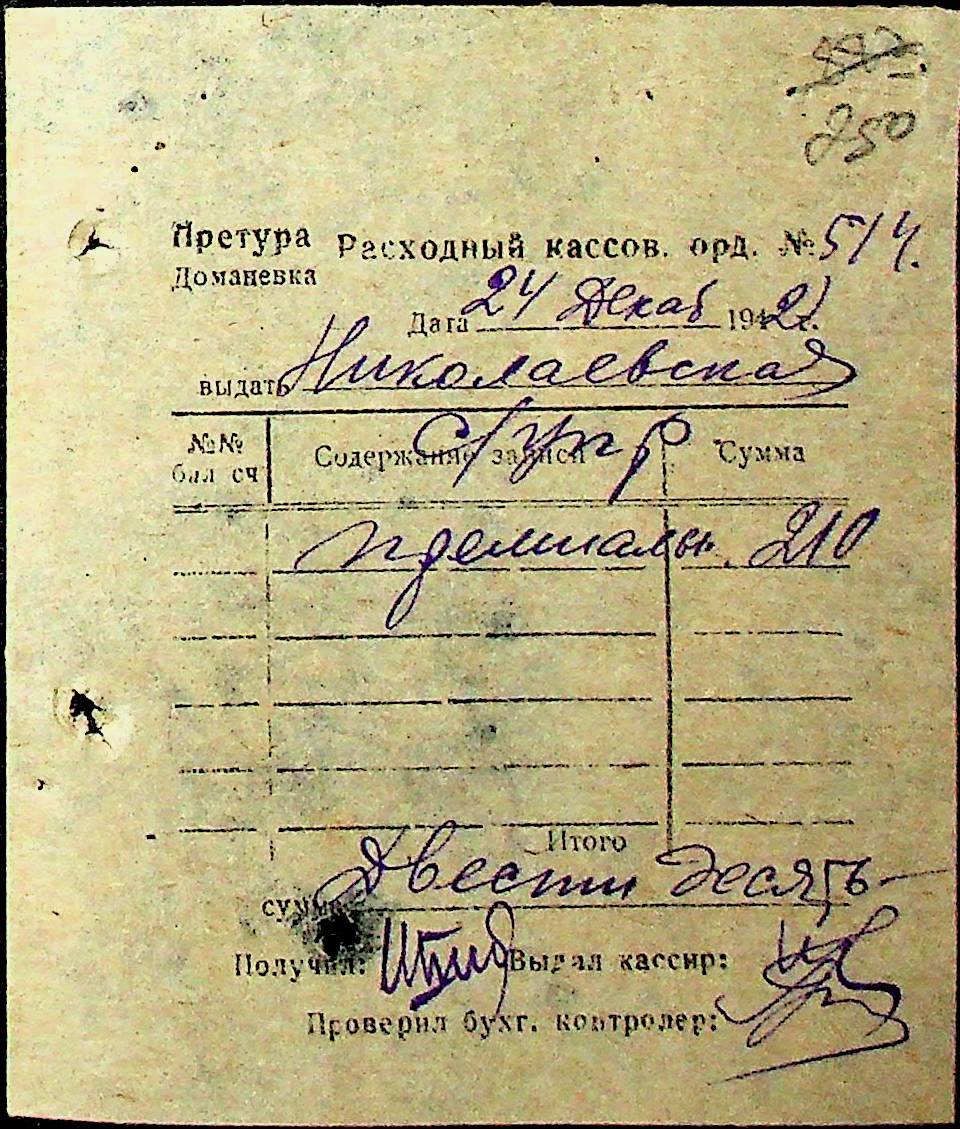 850
Претура Расходный кассов. орд. № 514.
Доманевка
Дата 24 Декаб 1942 г.
выдать Николаевская
с/упр
№№ Содержание записи Сумма
бал сч
премиалы. 210
Итого
сумма Двести десять
Получил: Выдал кассир:
Проверил бухг. контролер: